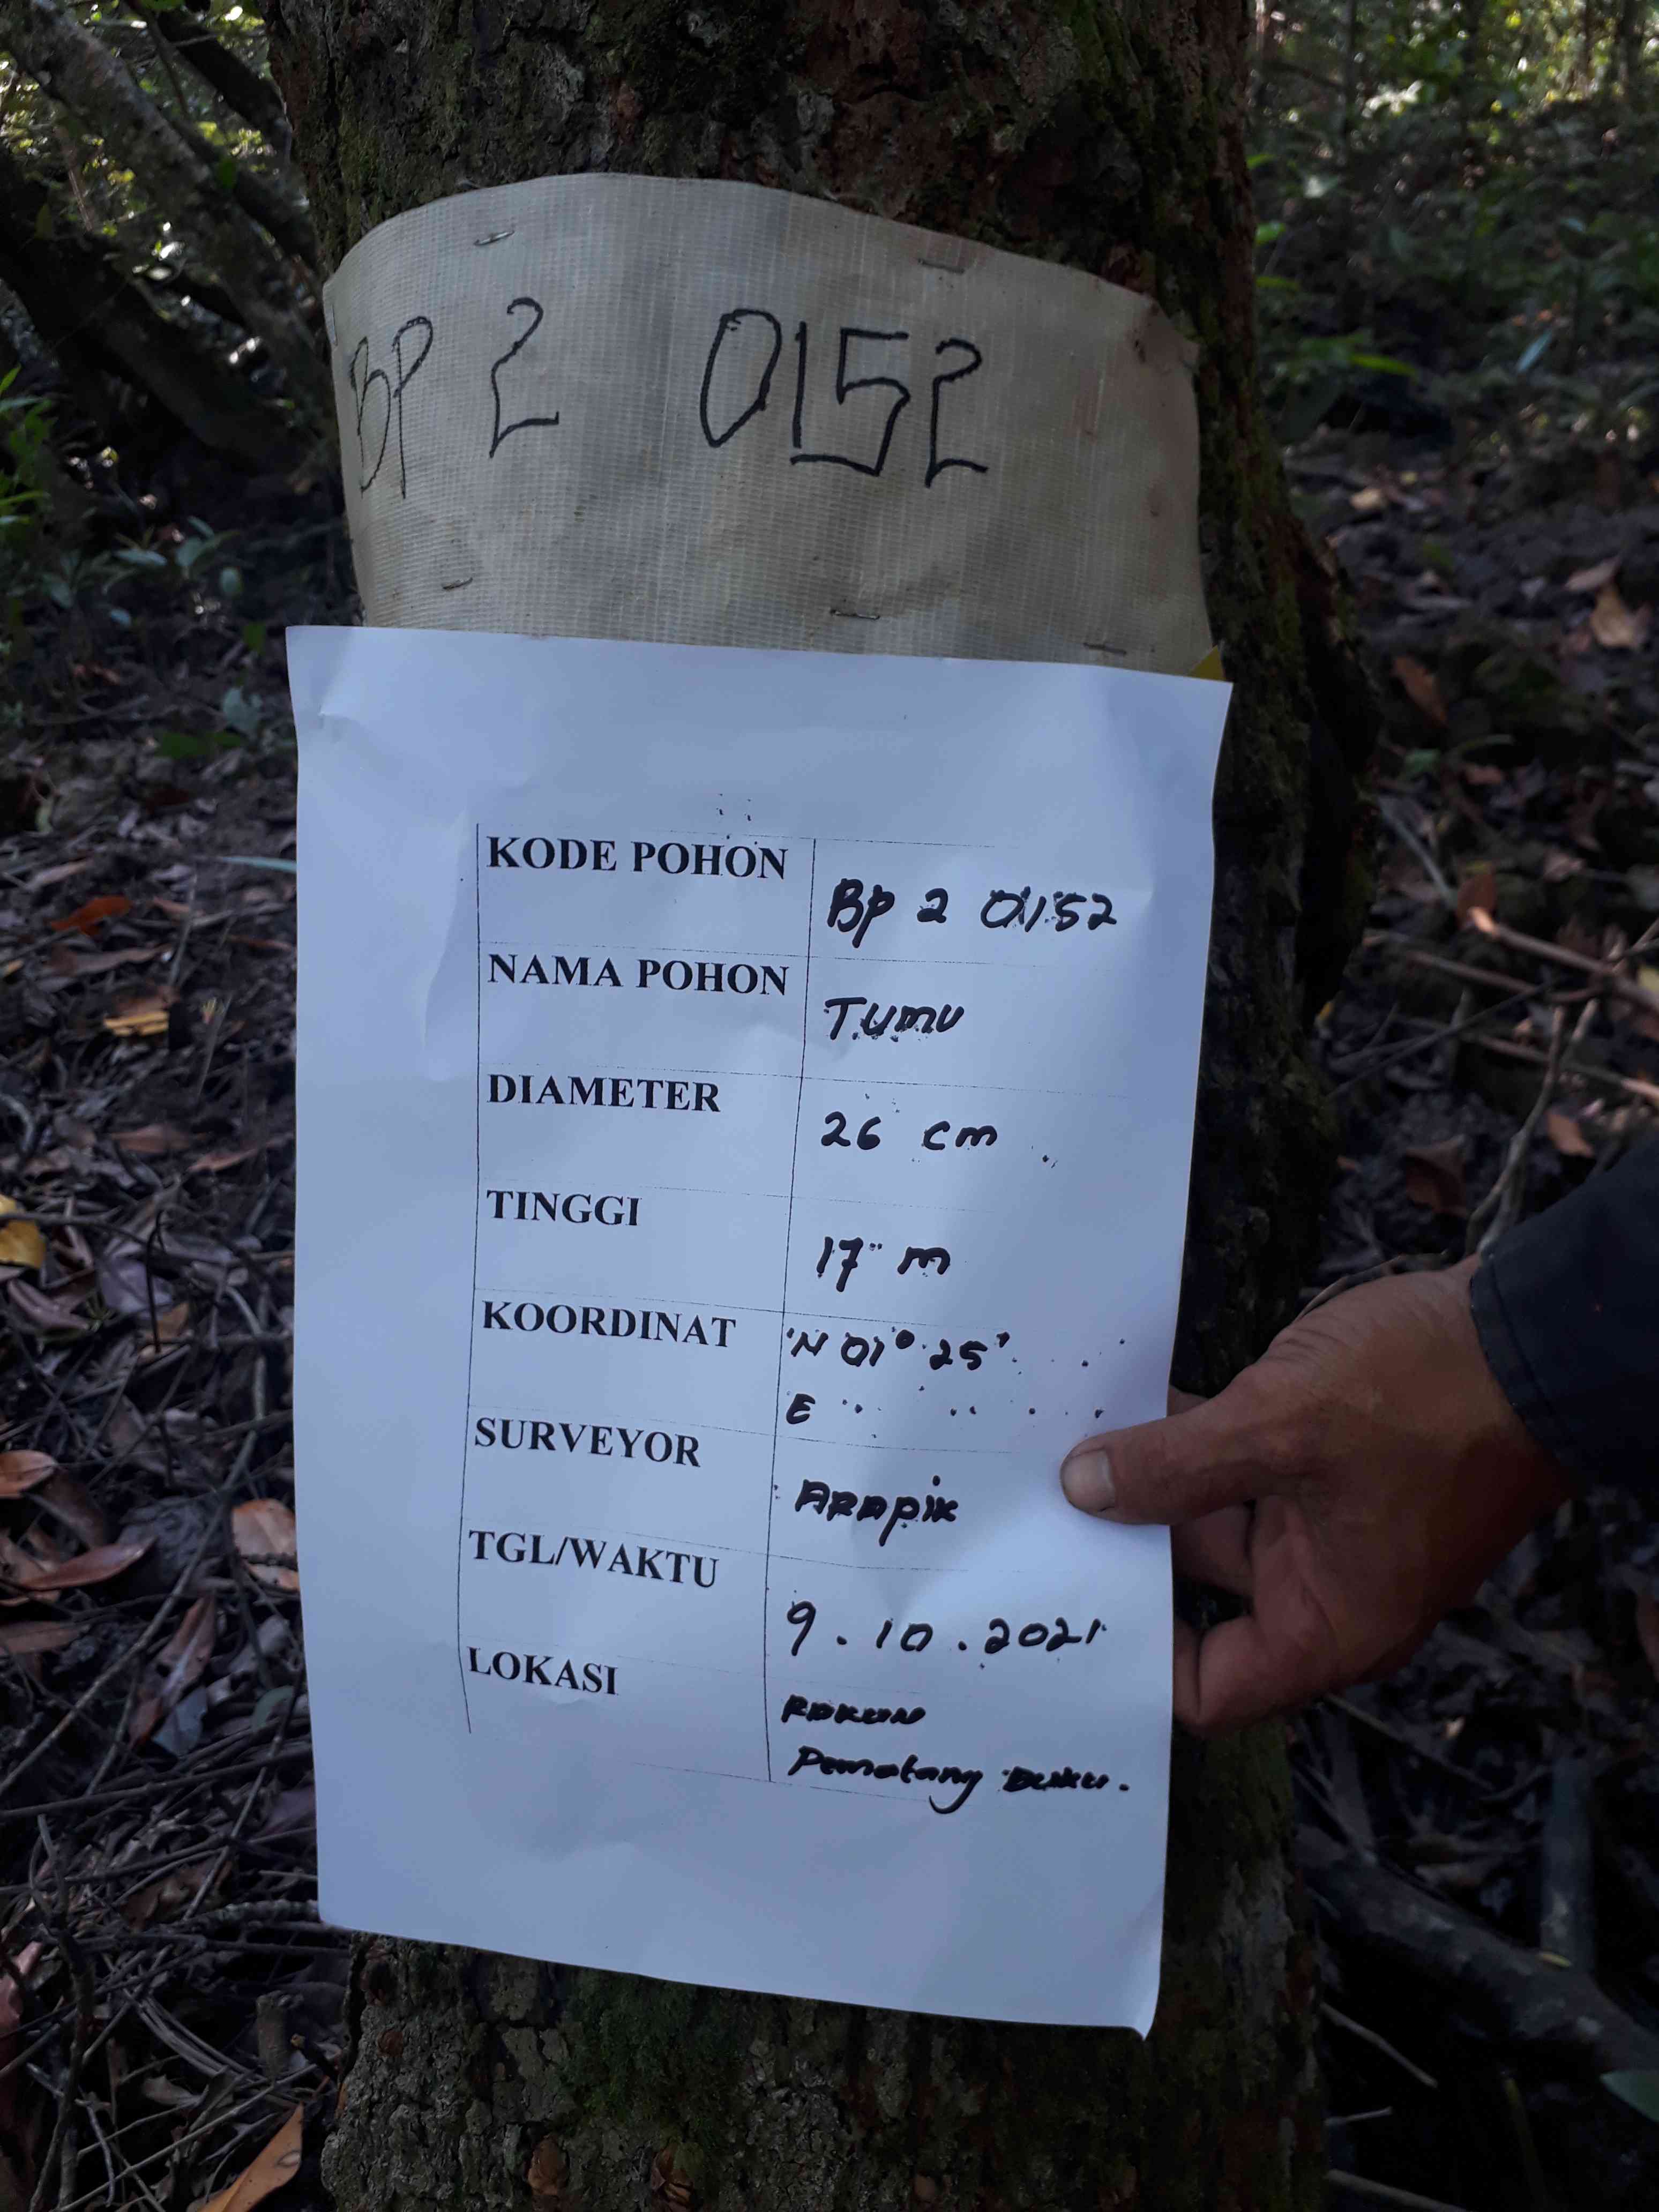 BP 2 0152
KODE POHON Bp 2 0152
NAMA POHON Tumu
DIAMETER 26 cm
TINGGI 17 m
KOORDINAT N 01° 25'
E
SURVEYOR ARAPIK
TGL/WAKTU 9.10.2021
LOKASI
Pematang